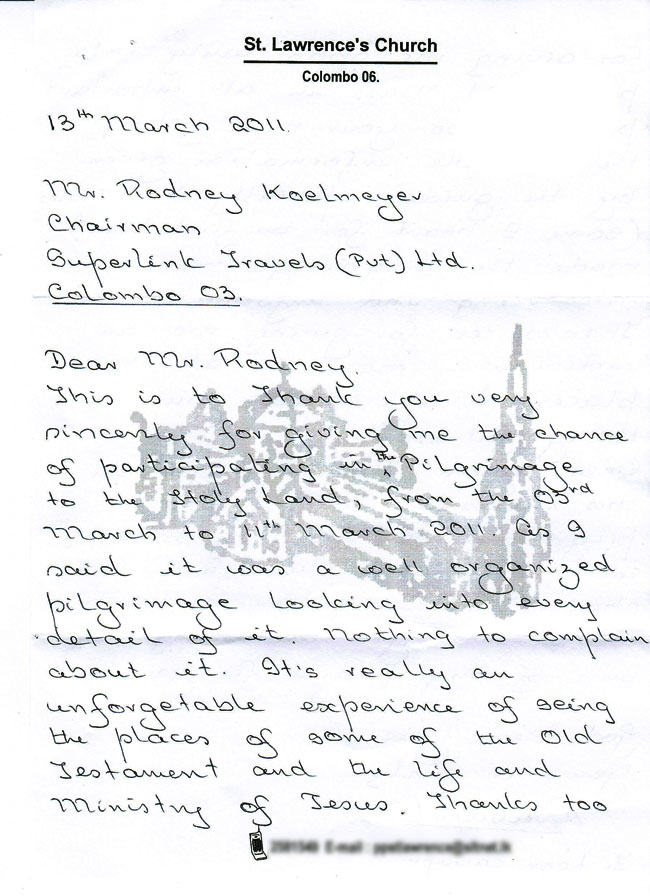 St. Lawrence's Church
Colombo 06.
13th March 2011.
Mr. Rodney Koelmeyer
Chairman
Superlink Travels (Pvt) Ltd.
Colombo 03.
Dear Mr. Rodney,
This is to Thank you very
sincerely for giving me the chance
of participating in The Pilgrimage
to the Holy Land, from the 03rd
March to 11th March 2011. As I
said it was a well organized
pilgrimage Looking into every
detail of it. Nothing to complain
about it. It's really an
unforgetable experience of seing
the places of some of the Old
Testament and the life and
Ministry of Jesus. Thanks too
E-mail